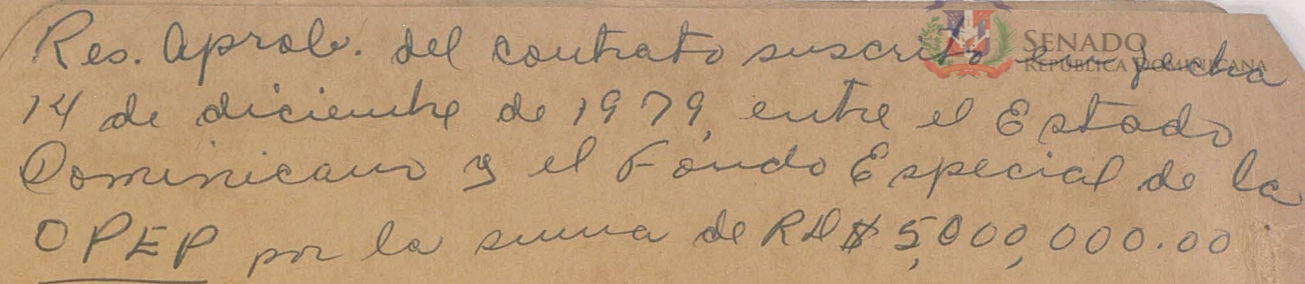 Res. Aprob. del contrato suscrito en fecha
14 de diciembre de 1979, entre el Estado
Dominicano y el Fondo Especial de la
OPEP por la suma de RD$5,000,000.00
SENADO
REPÚBLICA DOMINICANA